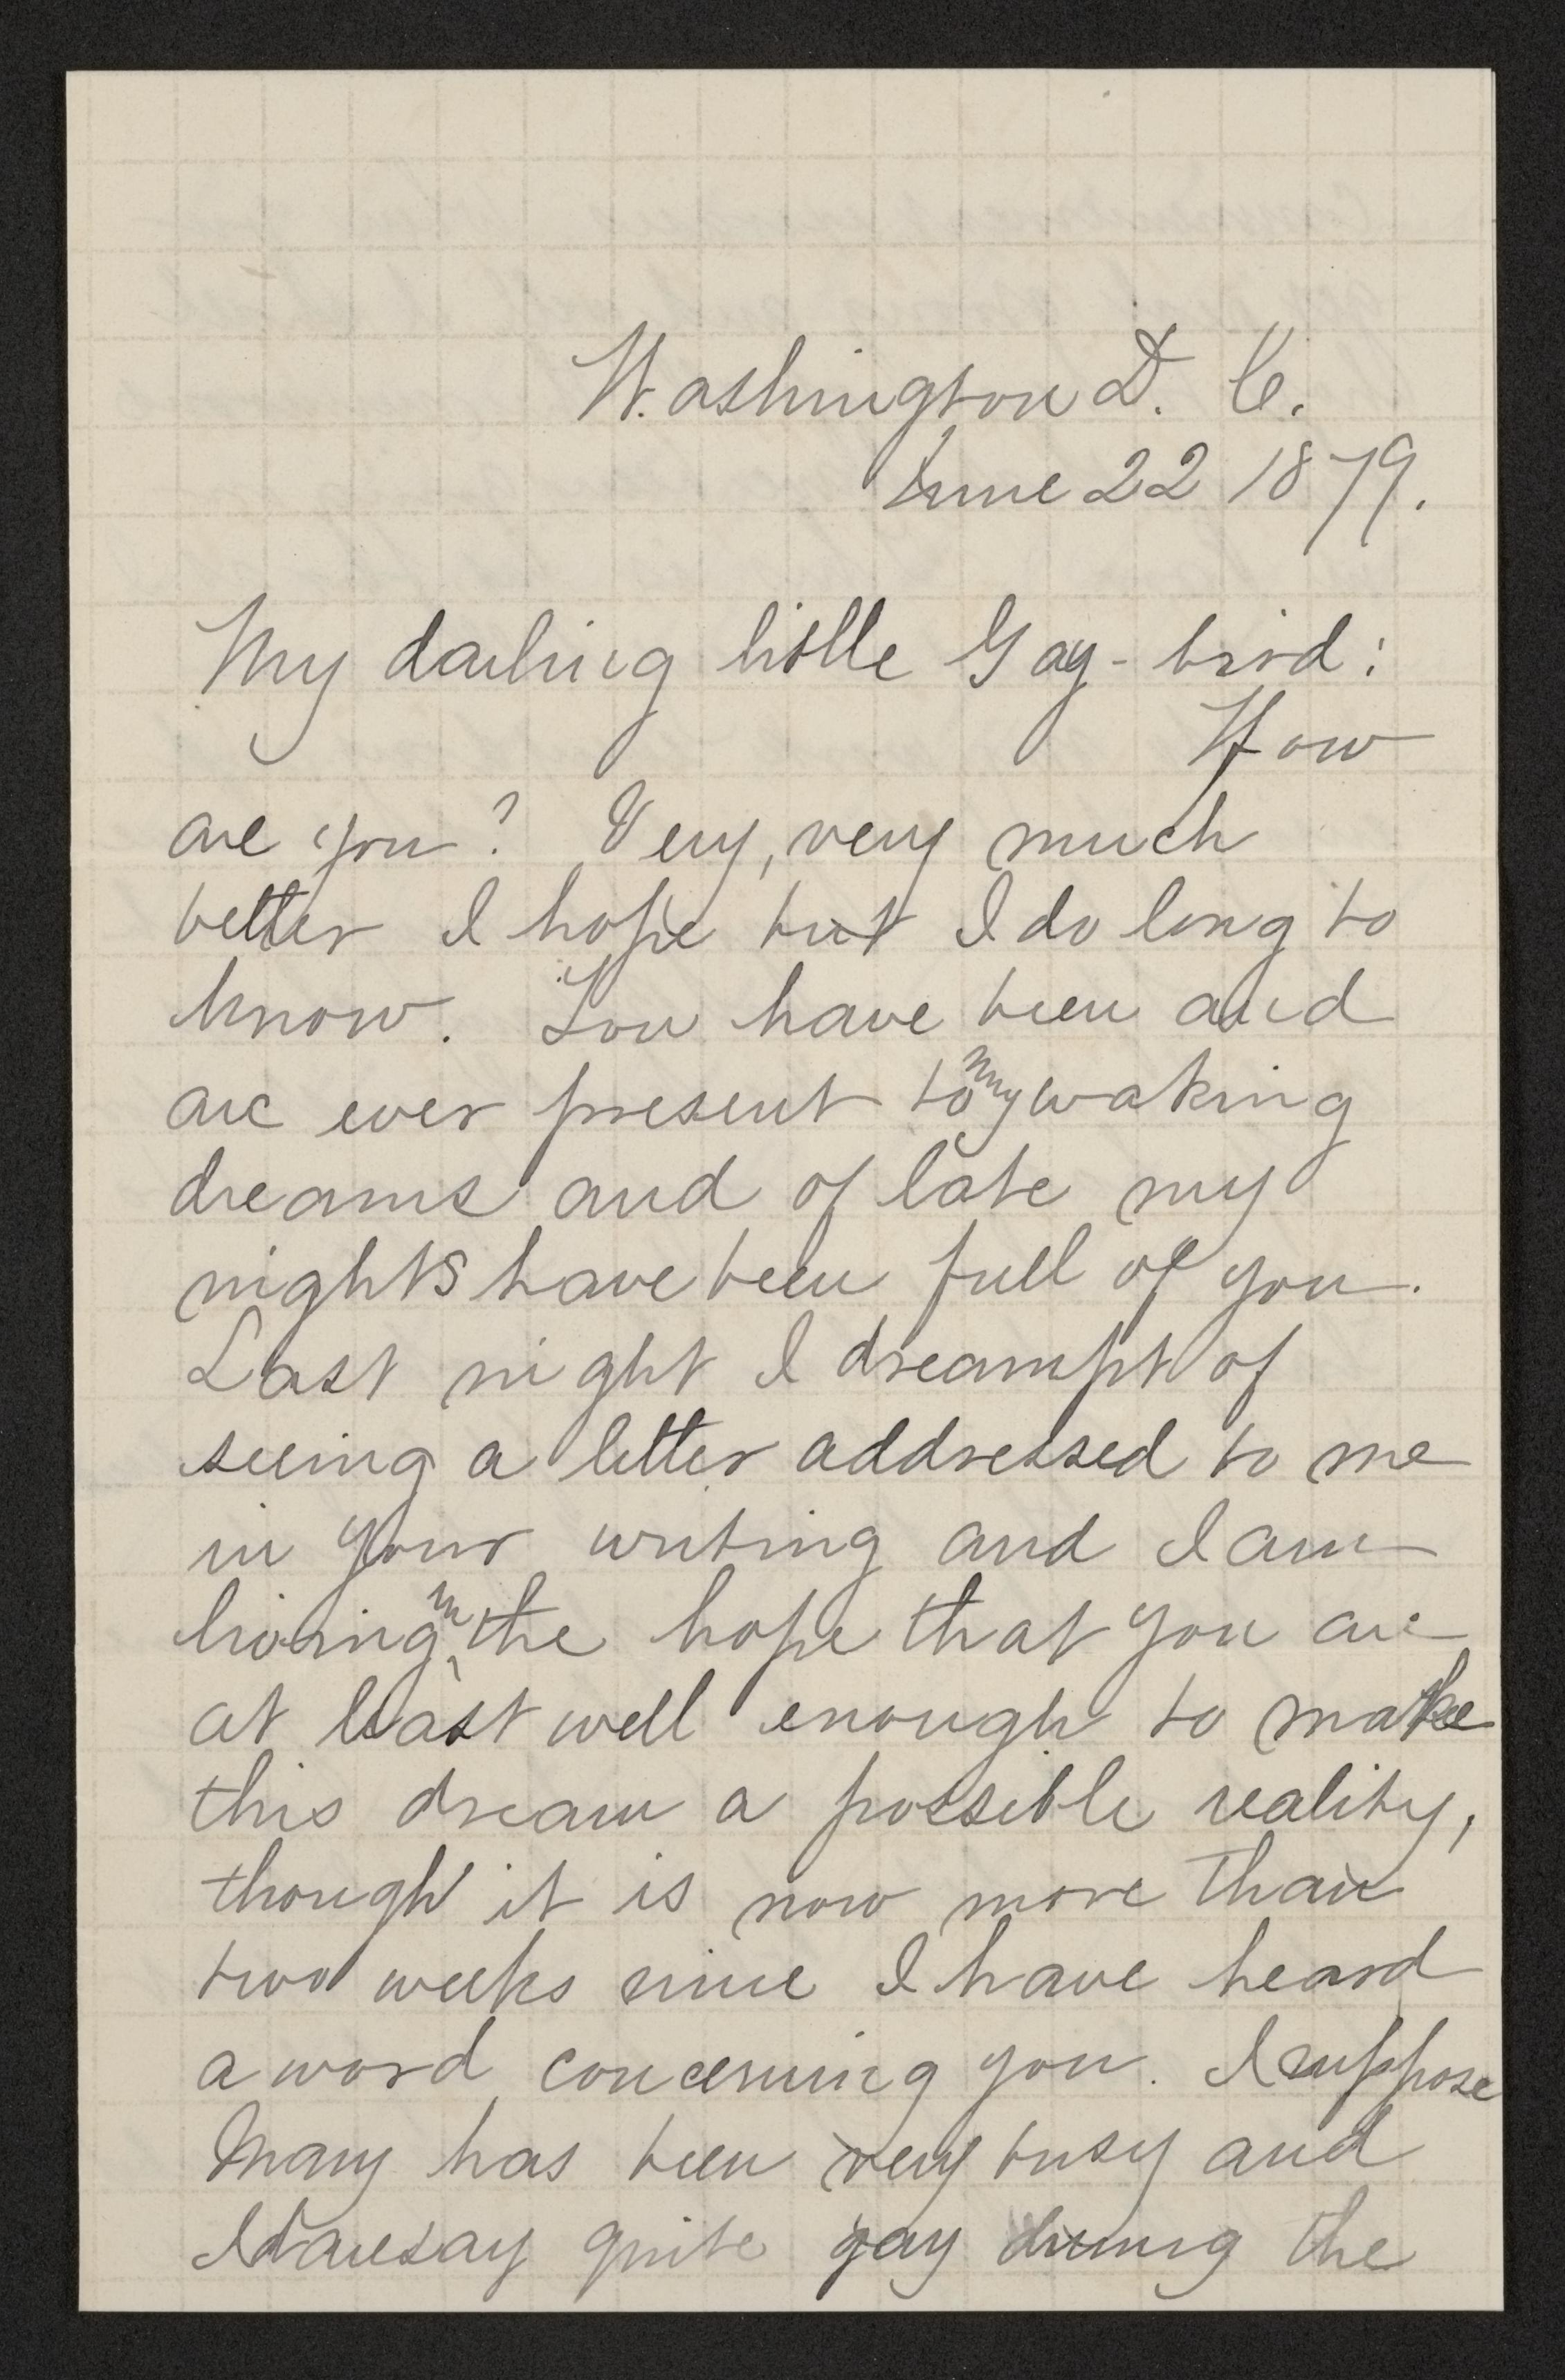 Washington D. C.
June 22 1879.
My darling little Gay-bird:
How
are you? Very, very much
better I hope but I do long to
know. You have been and
are ever present to my waking
dreams and of late my
nights have been full of you.
Last night I dreampt of
seeing a letter addressed to me
in your writing and I am
living in the hope that you are
at least well enough to make
this dream a possible reality,
though it is now more than
two weeks since I have heard
a word concerning you. I suppose
Mary has been very busy and
I daresay quite gay during the